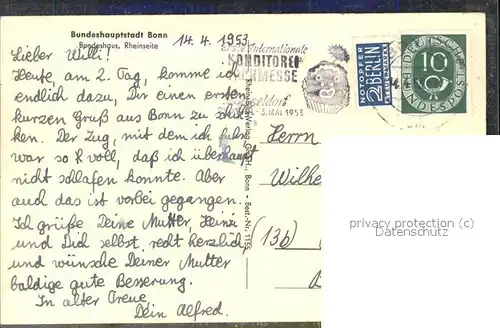 Bundeshauptstadt Bonn
Bundeshaus, Rheinseite
14.4.1953
Lieber Willi!
Heute, am 2. Tag, komme ich
endlich dazu, Dir einen ersten
kurzen Gruß aus Bonn zu schik-
ken. Der Zug, mit dem ich fuhr,
war so voll, daß ich überhaupt
nicht schlafen konnte. Aber
auch das ist vorbei gegangen.
Ich grüße Deine Mutter, Heinz
und Dich selbst, recht herzlich
und wünsche Deiner Mutter
baldige gute Besserung.
In alter Treue
Dein Alfred.
Erste Internationale
KONDITOREI
FACHMESSE
Düsseldorf
3. MAI 1953
NOTOPFER
2 BERLIN
STEUERMARKE
DEUTSCHE
10
BUNDESPOST
Bonn - Best.-Nr. 1155
Herrn
Wilhe
(13b)
privacy protection (c)
Datenschutz